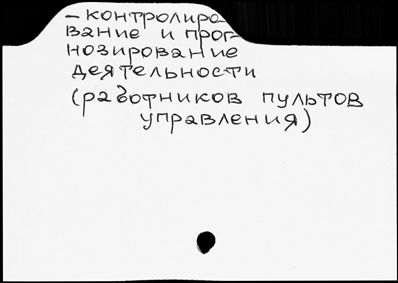 – контролиро-
вание и прог-
нозирование
деятельности
(работников пультов
управления)